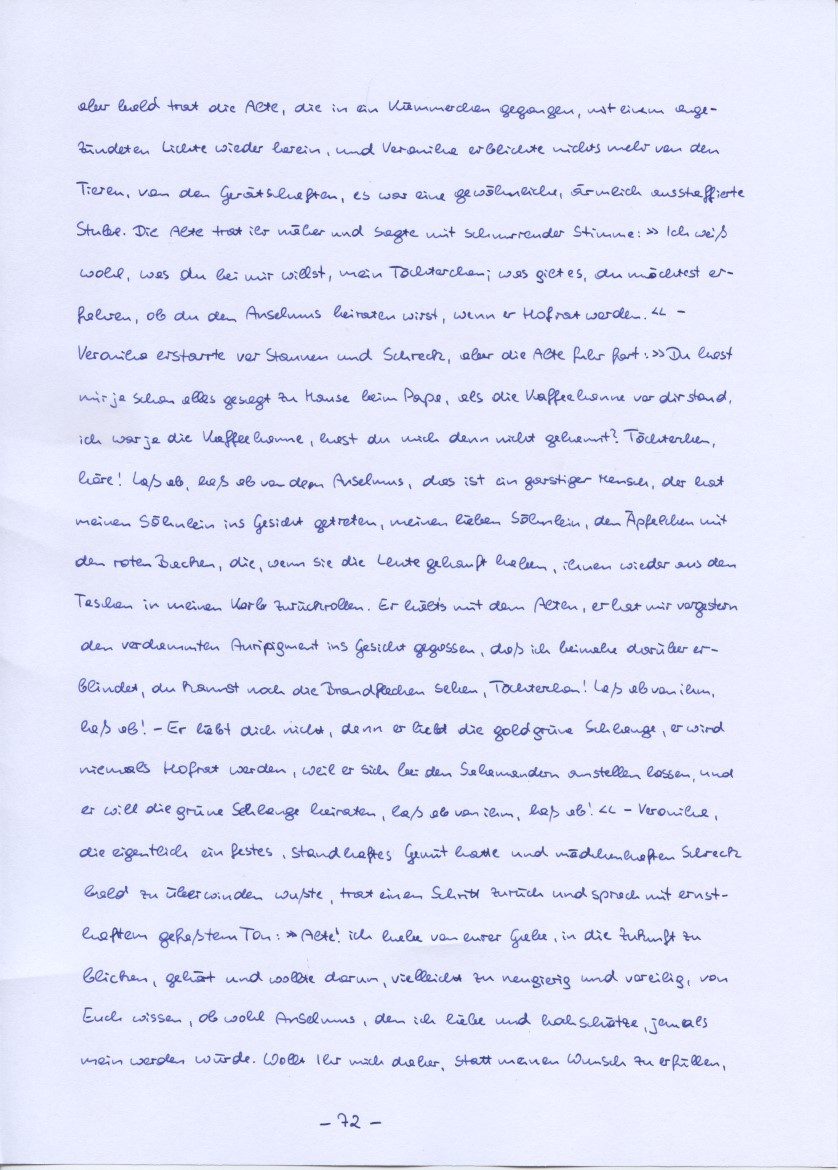 aber bald trat die Alte, die in ein Kämmerchen gegangen, mit einem ange-
zündeten Lichte wieder herein, und Veronika erblickte nichts mehr von den
Tieren, von den Gerätschaften, es war eine gewöhnliche, ärmlich ausstaffierte
Stube. Die Alte trat ihr näher und sagte mit schnurrender Stimme: »Ich weiß
wohl, was du bei mir willst, mein Töchterchen; was gilt es, du möchtest er-
fahren, ob du den Anselmus heiraten wirst, wenn er Hofrat worden.« –
Veronika erstarrte vor Staunen und Schreck, aber die Alte fuhr fort: »Du hast
mir ja schon alles gesagt zu Hause beim Papa, als die Kaffeekanne vor dir stand,
ich war ja die Kaffeekanne, hast du mich denn nicht gekannt? Töchterchen,
höre! Laß ab, laß ab von dem Anselmus, das ist ein garstiger Mensch, der hat
meinen Söhnlein ins Gesicht getreten, meinen lieben Söhnlein, den Äpfelchen mit
den roten Backen, die, wenn sie die Leute gekauft haben, ihnen wieder aus den
Taschen in meinen Korb zurückrollen. Er hälts mit dem Alten, er hat mir vorgestern
den verdammten Auripigment ins Gesicht gegossen, daß ich beinahe darüber er-
blindet, du kannst noch die Brandflecken sehen, Töchterchen! Laß ab von ihm,
laß ab! – Er liebt dich nicht, denn er liebt die goldgrüne Schlange, er wird
niemals Hofrat werden, weil er sich bei den Salamandern anstellen lassen, und
er will die grüne Schlange heiraten, laß ab von ihm, laß ab!« – Veronika,
die eigentlich ein festes, standhaftes Gemüt hatte und mädchenhaften Schreck
bald zu überwinden wußte, trat einen Schritt zurück und sprach mit ernst-
haftem gefaßtem Ton: »Alte! ich habe von eurer Gabe, in die Zukunft zu
blicken, gehört und wollte darum, vielleicht zu neugierig und voreilig, von
Euch wissen, ob wohl Anselmus, den ich liebe und hochschätze, jemals
mein werden würde. Wollt Ihr mich daher, statt meinen Wunsch zu erfüllen,
– 72 –